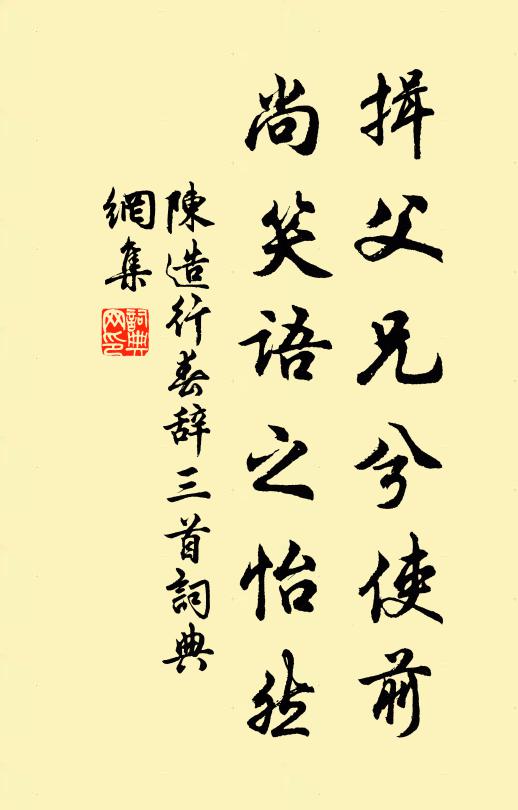 揖父兄兮使前
尚笑语之怡然
陳造行春辞三首詞典
網集
詞典
网印